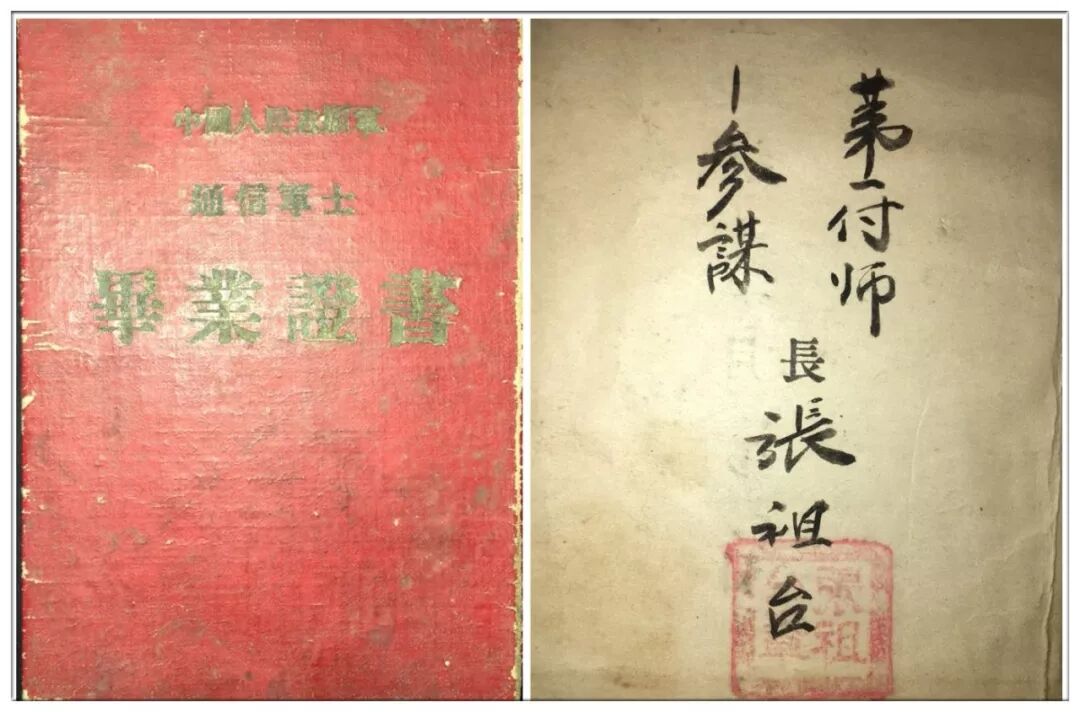 中國人民志願軍
通信軍士
畢業證書
第一付师
参謀
長
張祖台
張祖